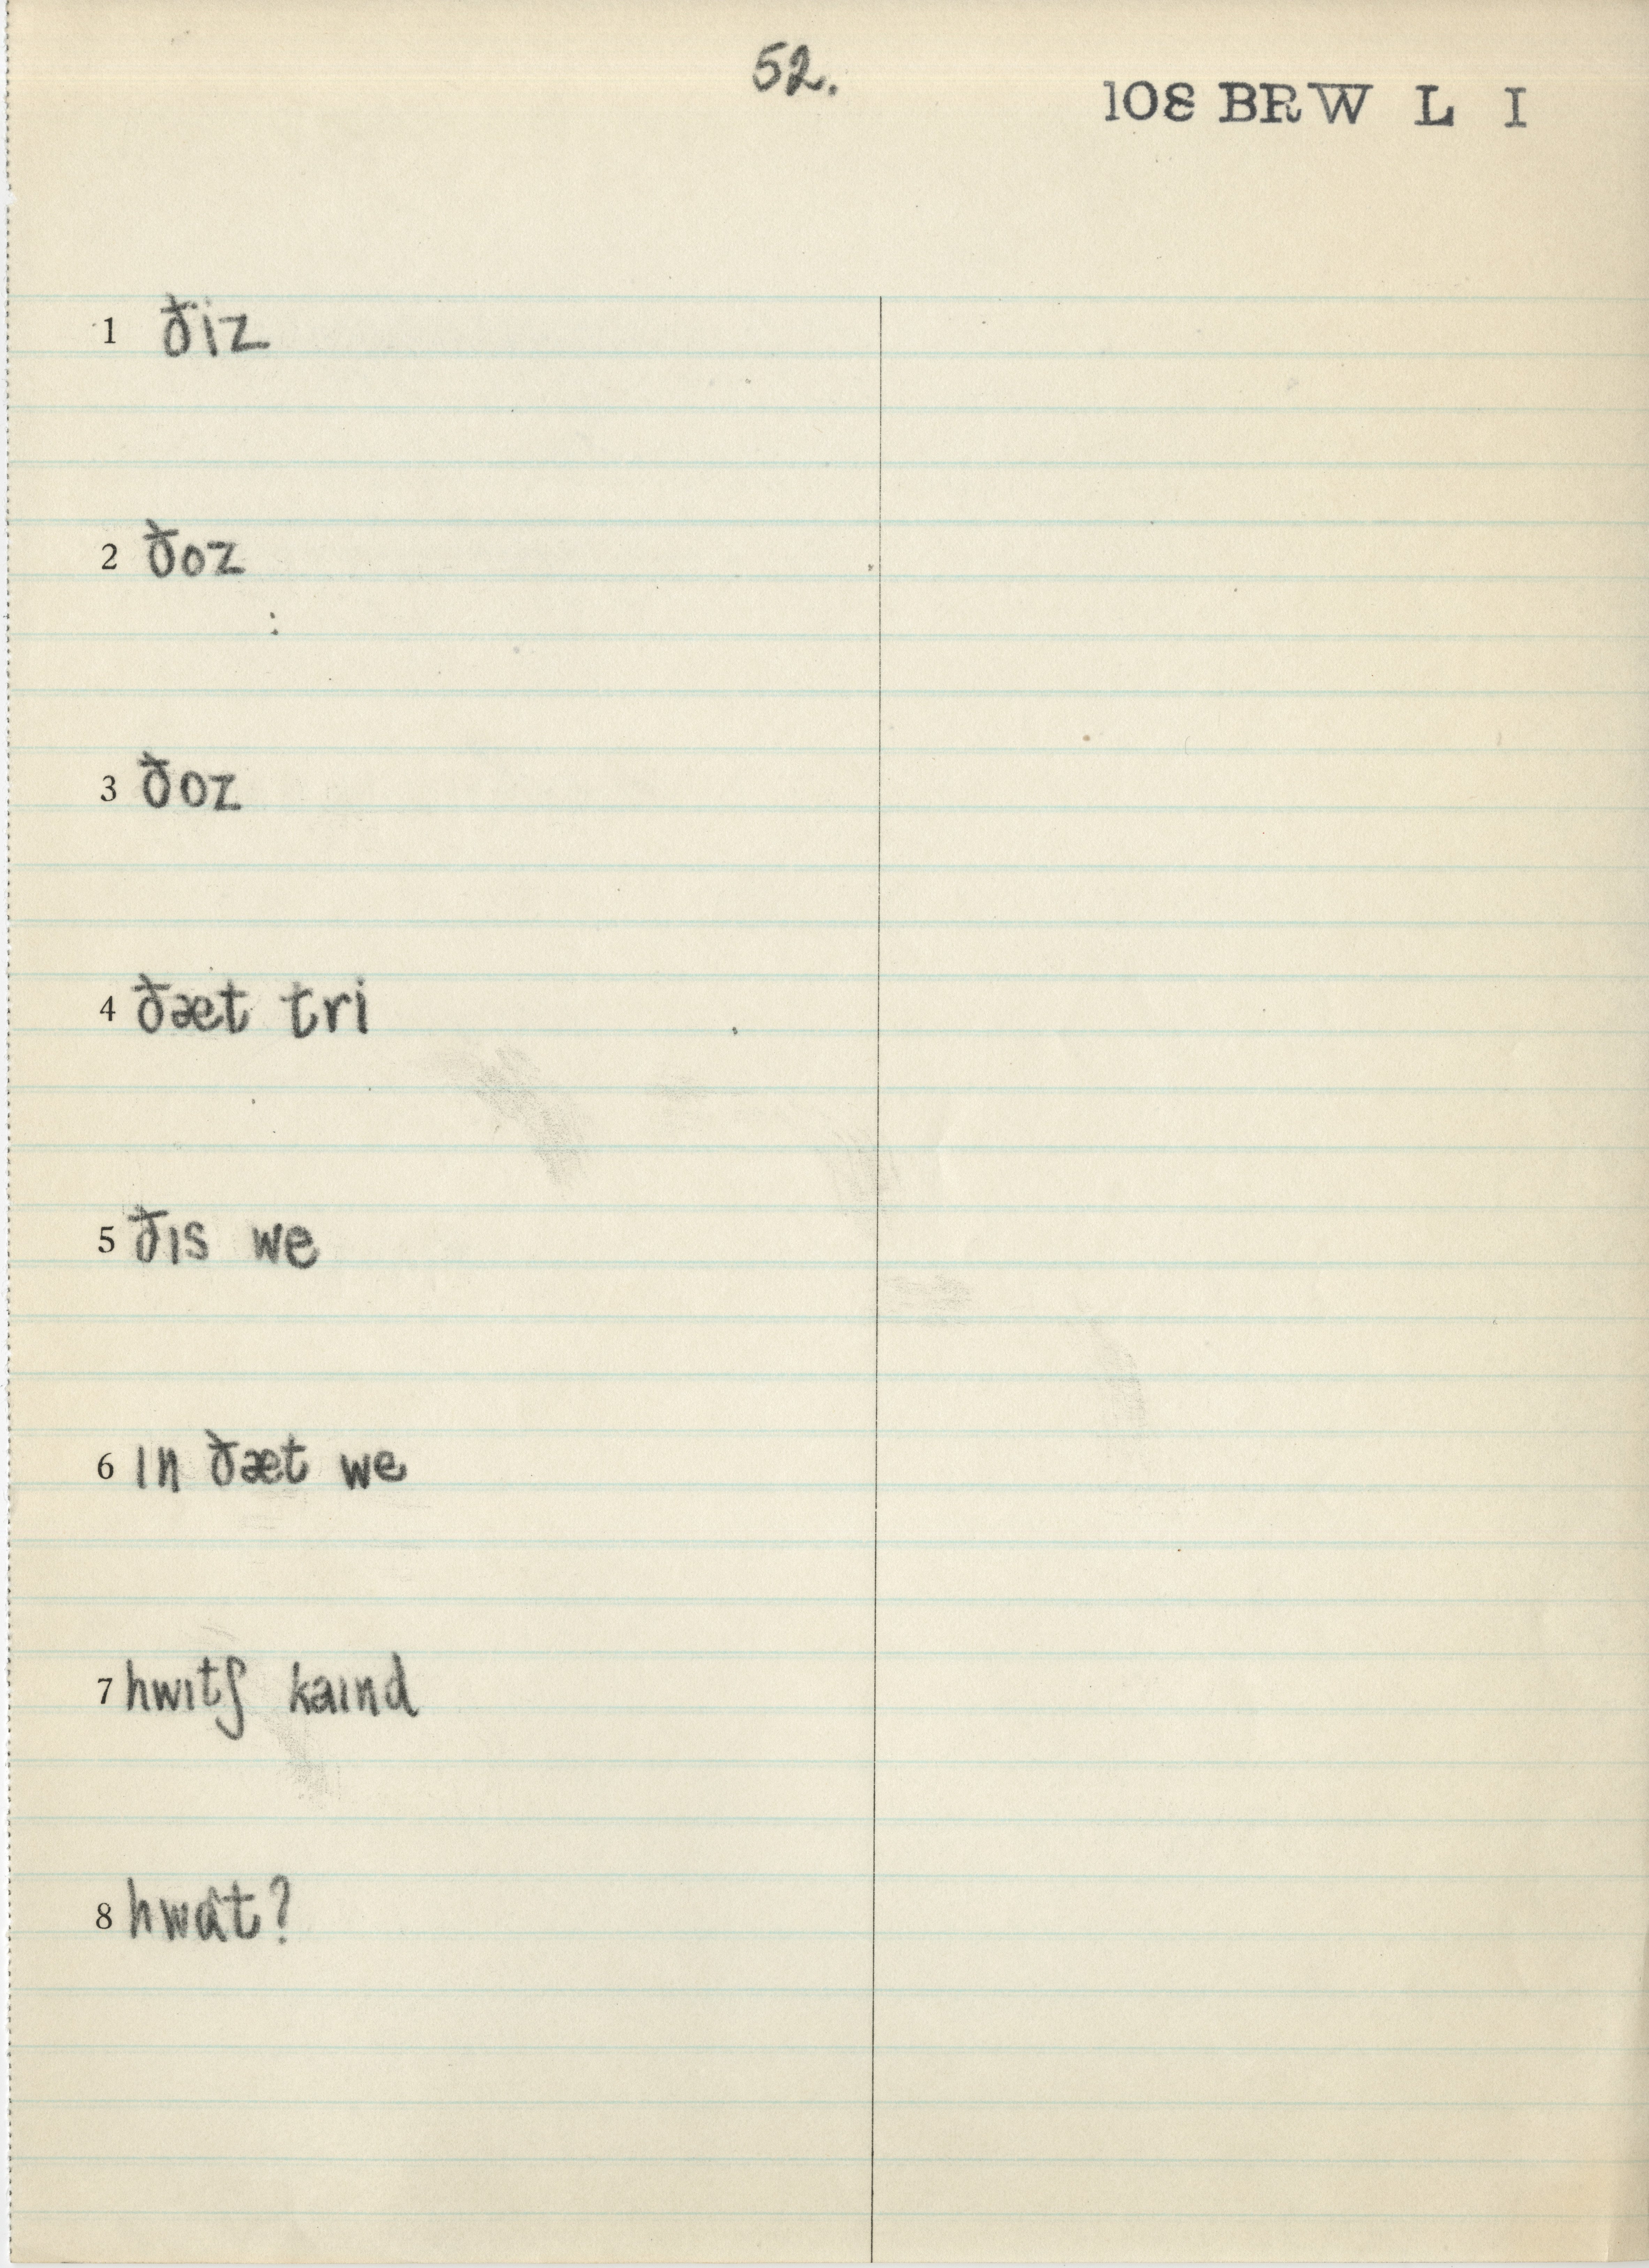 52.
108 BRW L I
1 ðiz
2 ðoz
3 ðoz
4 ðæt tri
5 ðɪs we
6 ɪn ðæt we
7 hwɪtʃ kaɪnd
8 hwɑt?